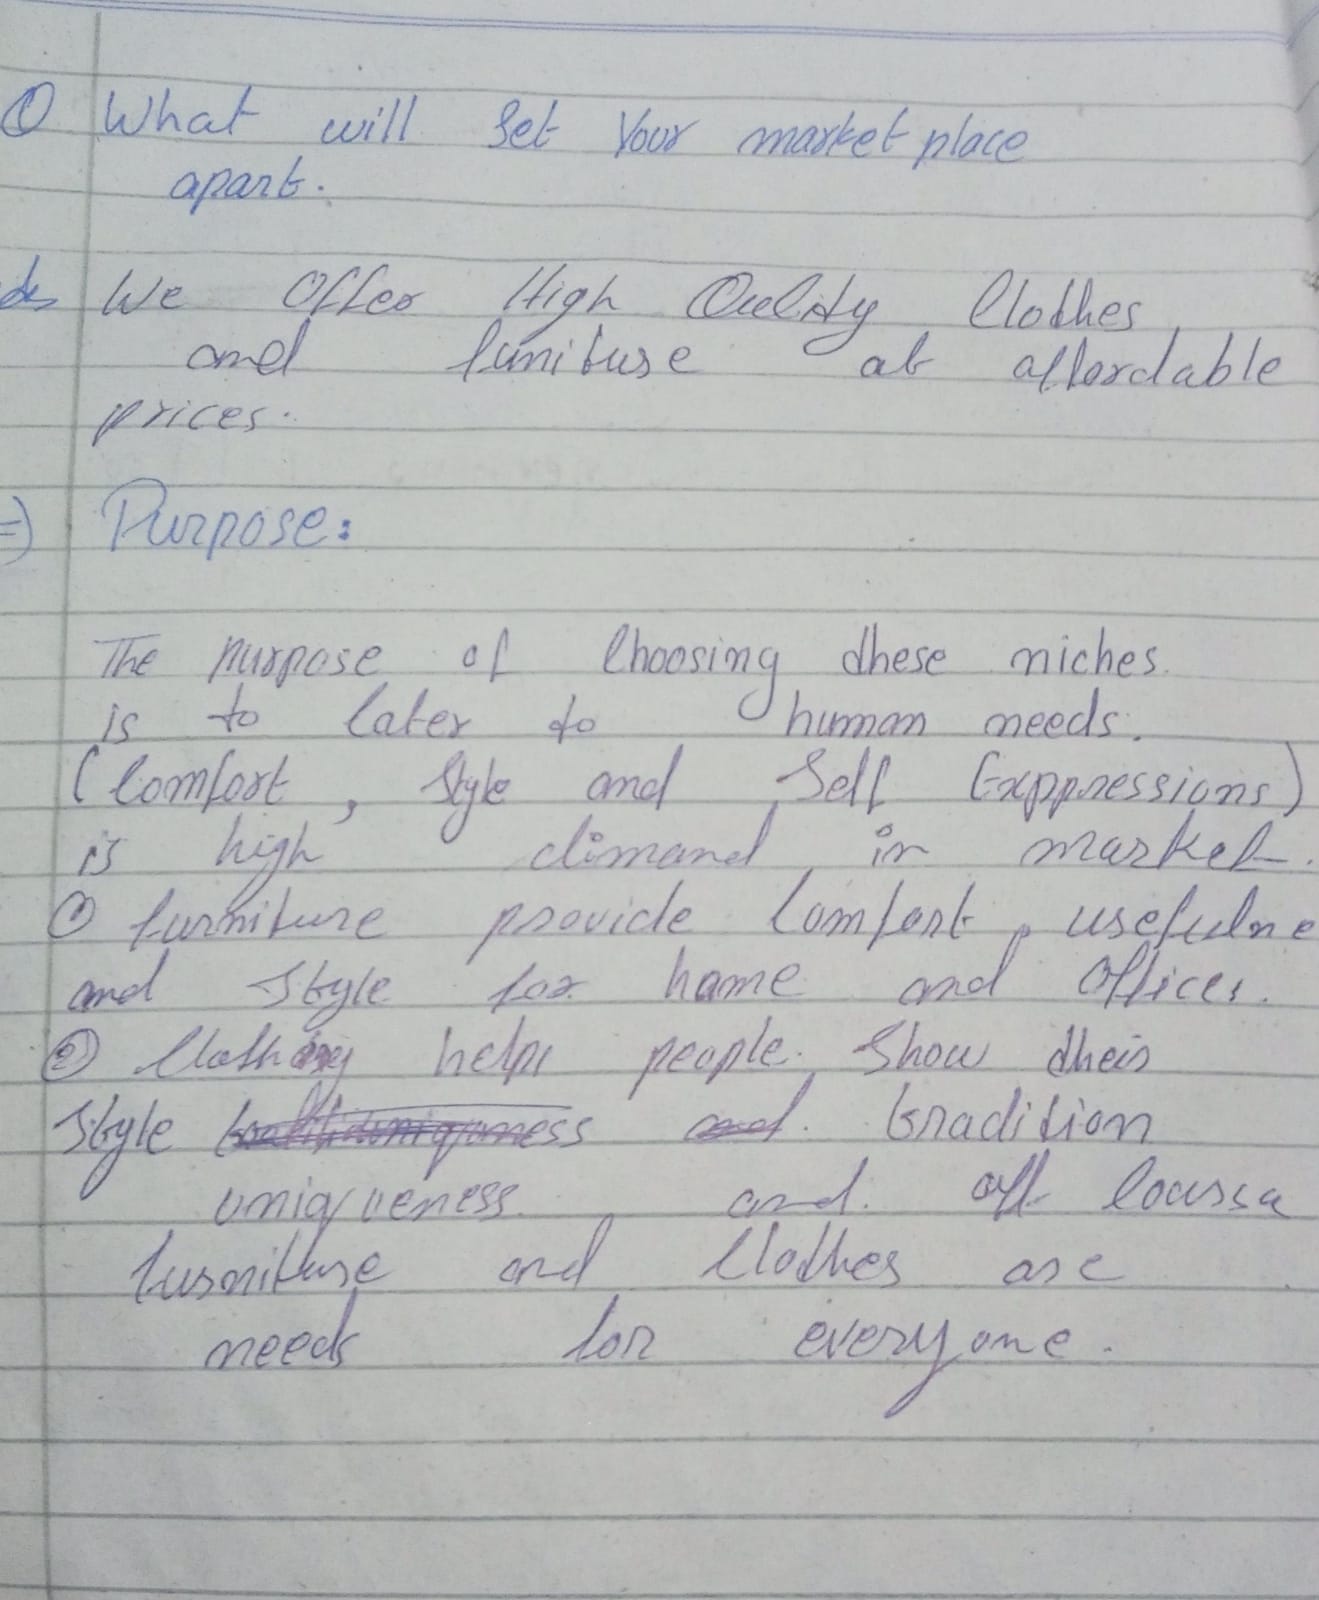 ① What will Set Your market place
apart.
We Offer High Quelity Clothes
and funiture at affordable
prices.
=> Purpose:
The purpose of Choosing these niches
is to Cater to human needs.
(Comfort, Style and Self Exppressions)
is high dimand in market.
① furniture provide Comfort, usefulne
and Style for home and Offices.
② Clothing helps people Show their
Style and tradition
uniqueness and off Coussa
furniture and Clothes are
needs for everyone.